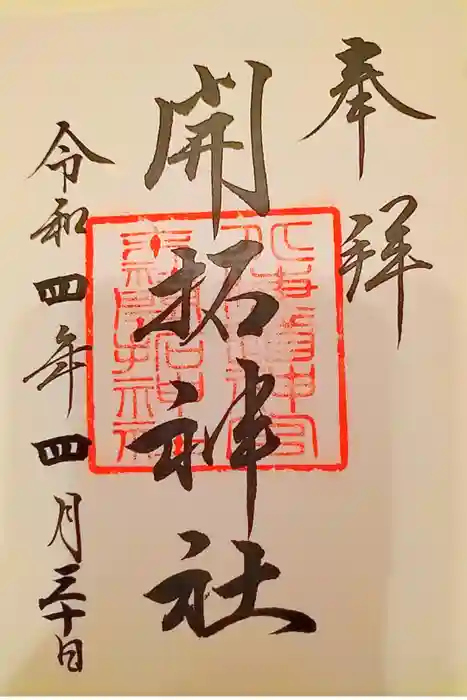 奉拝
開拓神社
令和四年四月三十日